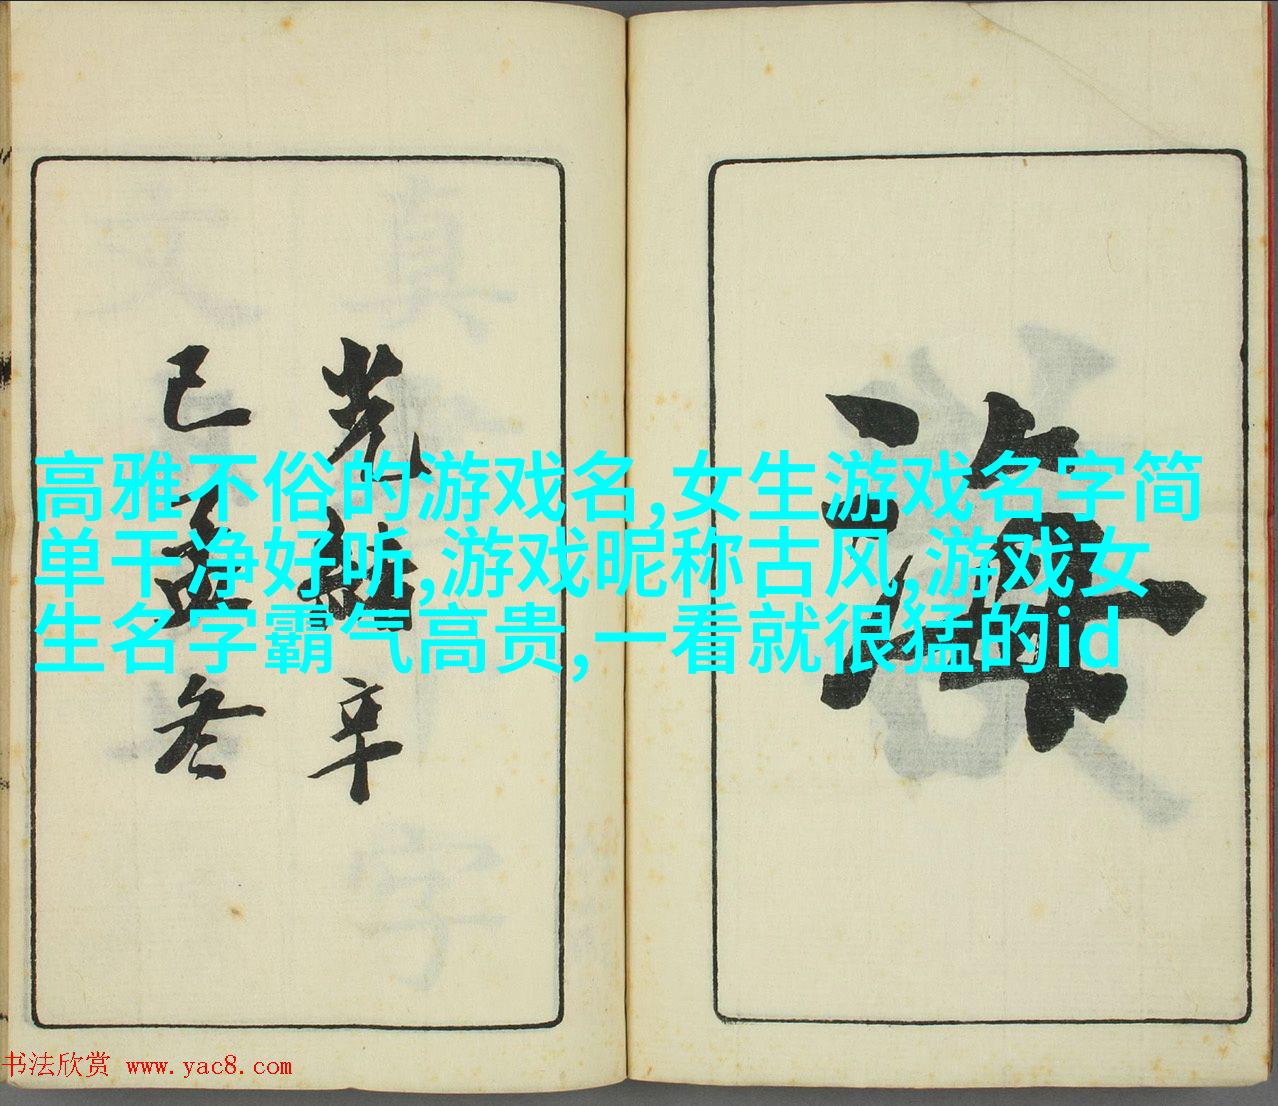 海
光緒辛
巳孟冬
高雅不俗的游戏名,女生游戏名字简
单干净好听,游戏昵称古风,游戏女
生名字霸气高贵,一看就很猛的id
书法欣赏 www.yac8.com